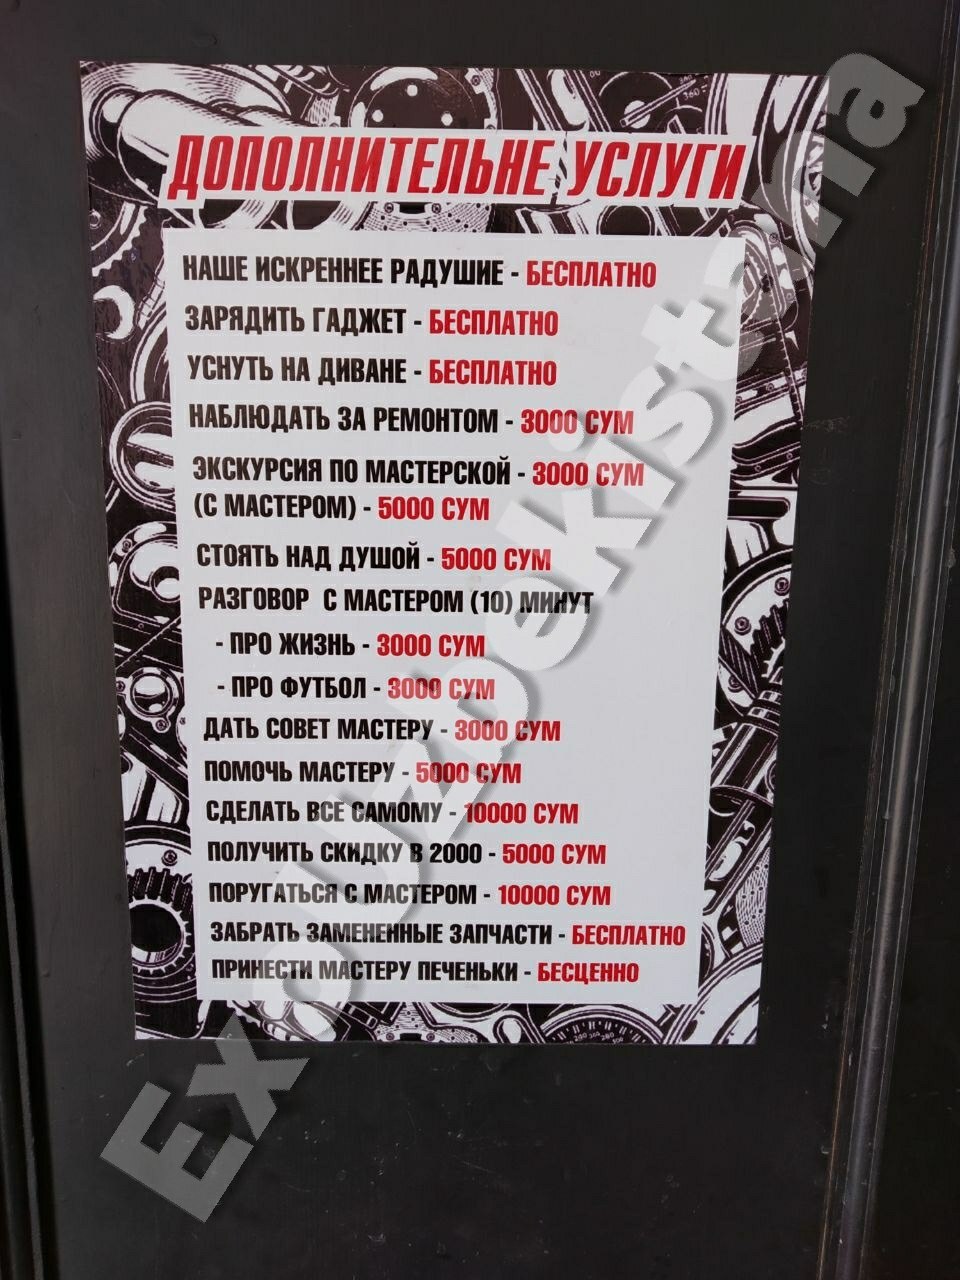 ДОПОЛНИТЕЛЬНЕ УСЛУГИ
НАШЕ ИСКРЕННЕЕ РАДУШИЕ - БЕСПЛАТНО
ЗАРЯДИТЬ ГАДЖЕТ - БЕСПЛАТНО
УСНУТЬ НА ДИВАНЕ - БЕСПЛАТНО
НАБЛЮДАТЬ ЗА РЕМОНТОМ - 3000 СУМ
ЭКСКУРСИЯ ПО МАСТЕРСКОЙ - 3000 СУМ
(С МАСТЕРОМ) - 5000 СУМ
СТОЯТЬ НАД ДУШОЙ - 5000 СУМ
РАЗГОВОР С МАСТЕРОМ (10) МИНУТ
- ПРО ЖИЗНЬ - 3000 СУМ
- ПРО ФУТБОЛ - 3000 СУМ
ДАТЬ СОВЕТ МАСТЕРУ - 3000 СУМ
ПОМОЧЬ МАСТЕРУ - 5000 СУМ
СДЕЛАТЬ ВСЕ САМОМУ - 10000 СУМ
ПОЛУЧИТЬ СКИДКУ В 2000 - 5000 СУМ
ПОРУГАТЬСЯ С МАСТЕРОМ - 10000 СУМ
ЗАБРАТЬ ЗАМЕНЕННЫЕ ЗАПЧАСТИ - БЕСПЛАТНО
ПРИНЕСТИ МАСТЕРУ ПЕЧЕНЬКИ - БЕСЦЕННО